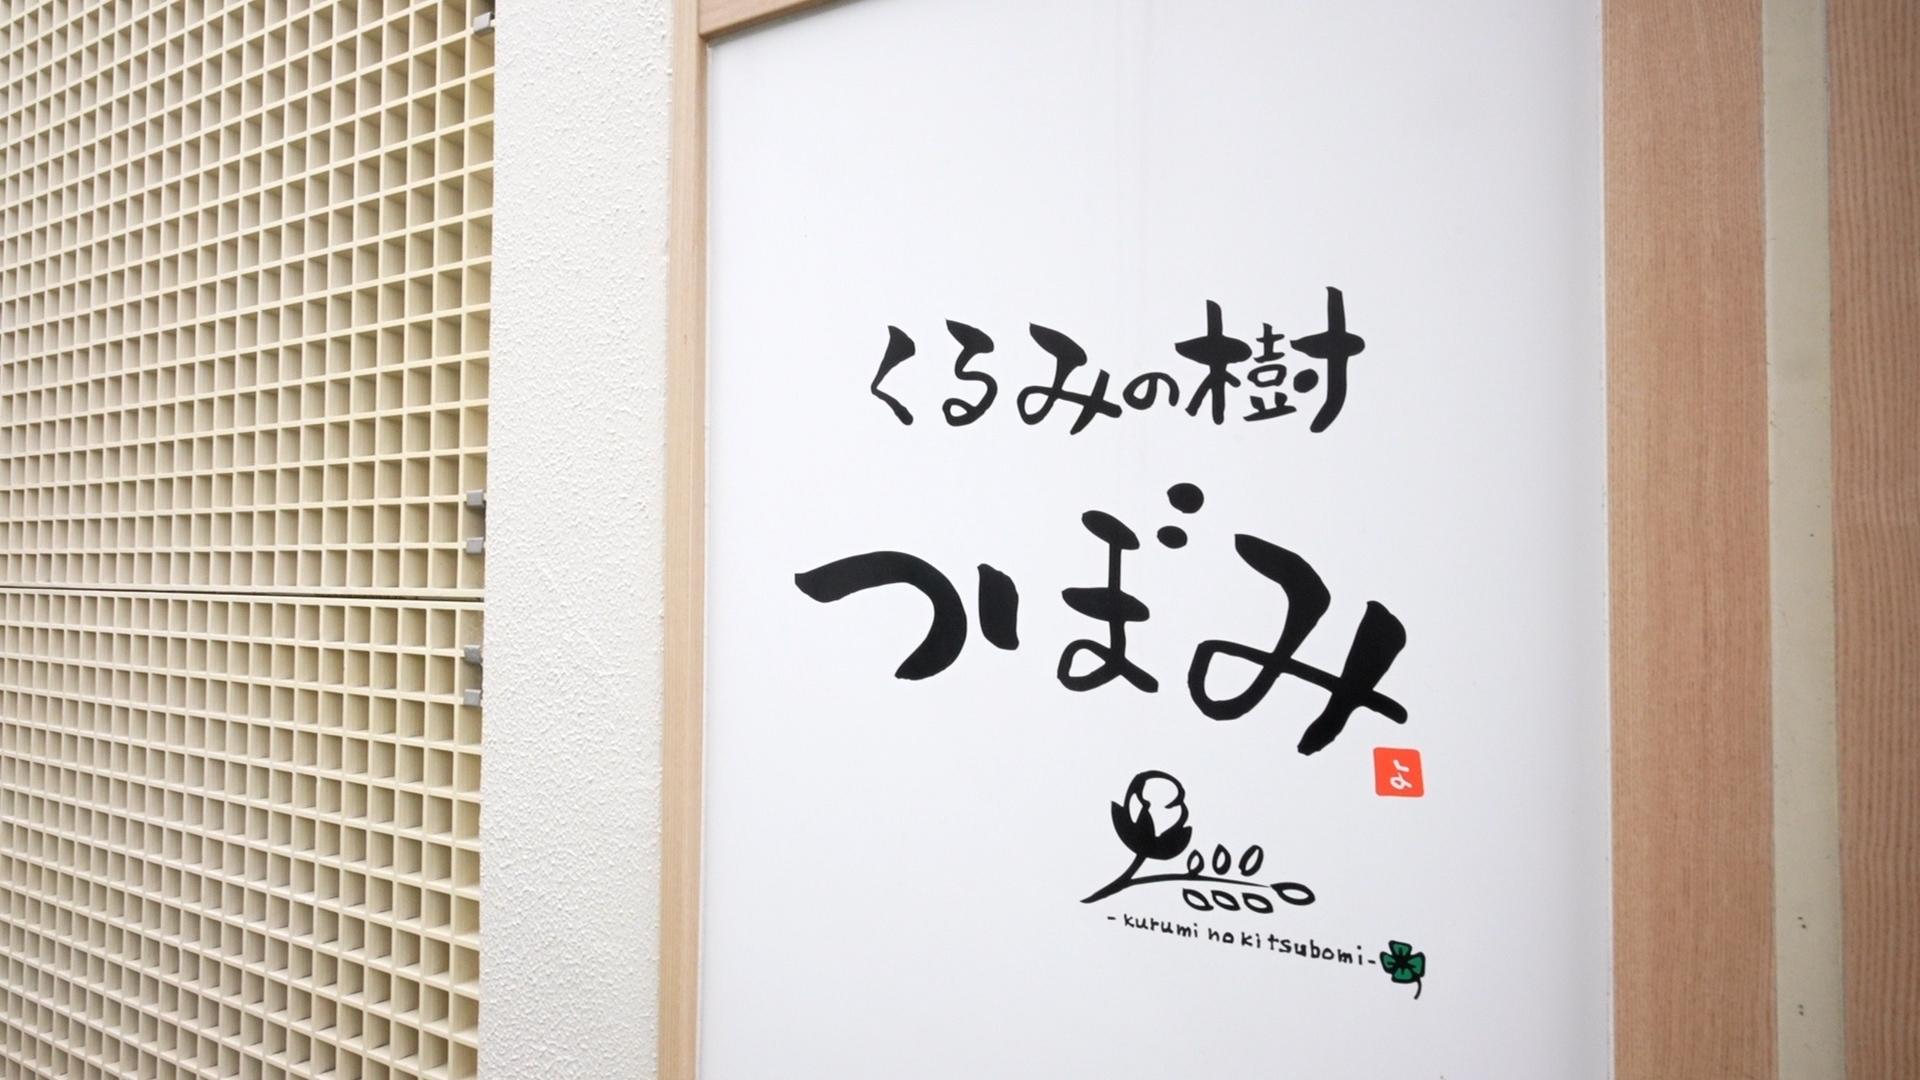 くるみの樹
つぼみ
よ
- kurumi no ki tsubomi -